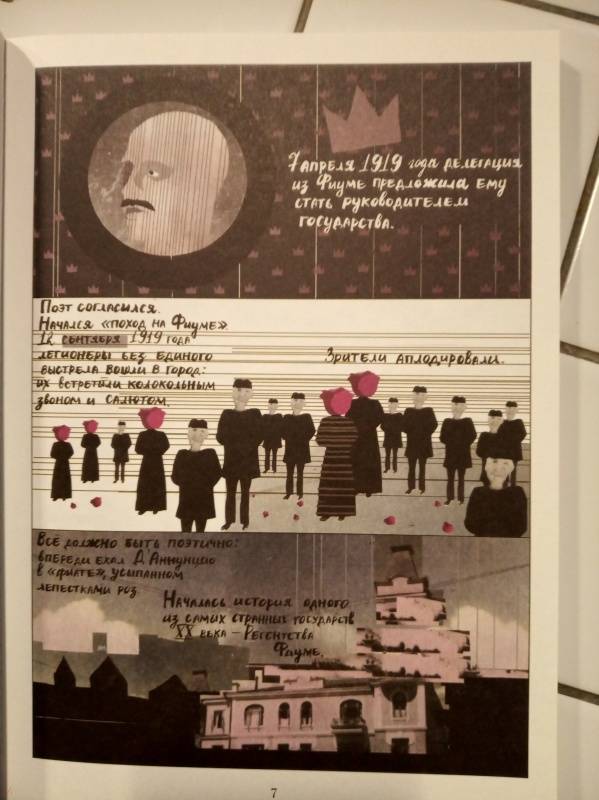 7 апреля 1919 года делегация
из Фиуме предложила ему
стать руководителем
государства.
Поэт согласился.
Начался «поход на Фиуме».
12 сентября 1919 года
легионеры без единого
выстрела вошли в город:
их встретили колокольным
звоном и салютом.
Зрители аплодировали.
Всё должно быть поэтично:
впереди ехал Д'Аннунцио
в «фиате», усыпанном
лепестками роз
Началась история одного
из самых странных государств
XX века – Регентства
Фиуме.
7